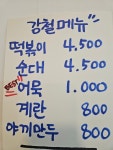 강철메뉴"
떡볶이 4.500
순대 4.500
어묵 1.000
계란 800
야끼만두 800